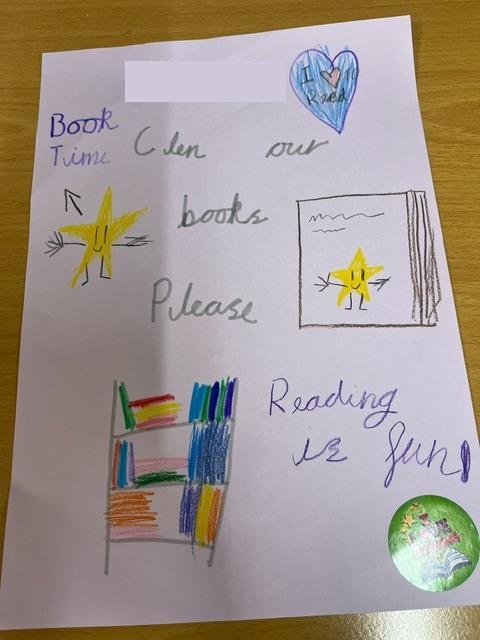 I ❤ to
Read
Book
Time
Clen our
books
Please
Reading
is fun!